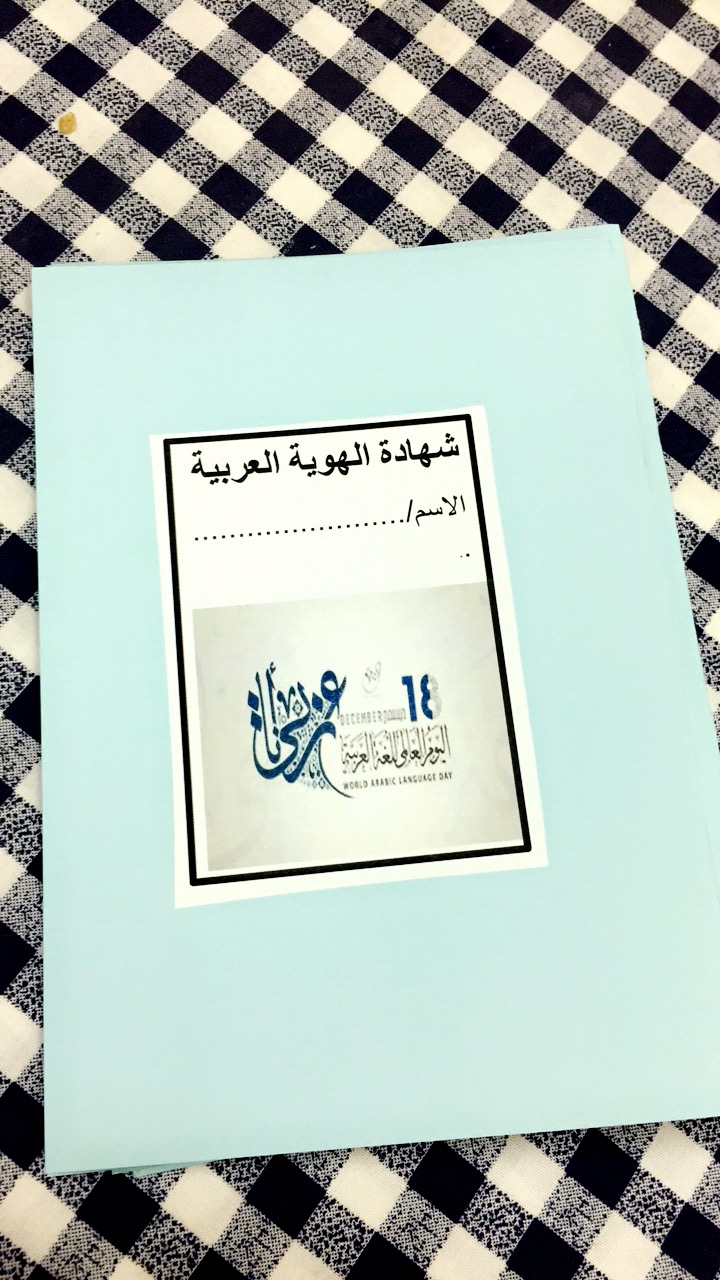 شهادة الهوية العربية
الاسم/.......................
..
أنا عربي
18
DECEMBER ديسمبر
اليوم العالمي للغة العربية
WORLD ARABIC LANGUAGE DAY